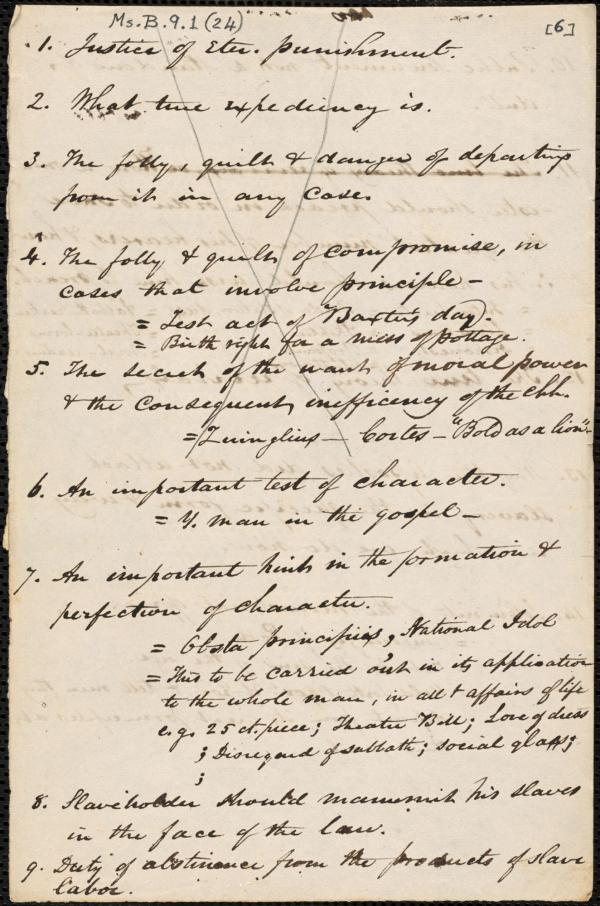 Ms.B.9.1(24)
[6]
1. Justice of Eter. punishment.
2. What true expediency is.
3. The folly, guilt & danger of departing
from it in any case.
4. The folly & guilt of compromise, in
cases that involve principle -
= Test act of Baxter's day.
= Birth right for a mess of pottage.
5. The secret of the want of moral power
& the consequent inefficency of the chh.
= Zuinglius - Cortes - "Bold as a lion" -
6. An important test of character.
= Y. man in the gospel -
7. An important hint in the formation &
perfection of character.
= Obsta principiis, National Idol
= This to be carried out in its application
to the whole man, in all t affairs of life
e.g. 25 ct. piece; Theatre Bill; Love of dress
; Disregard of sabbath; social glass;
;
8. Slaveholder should manumit his slaves
in the face of the law.
9. Duty of abstinence from the products of slave
labor.